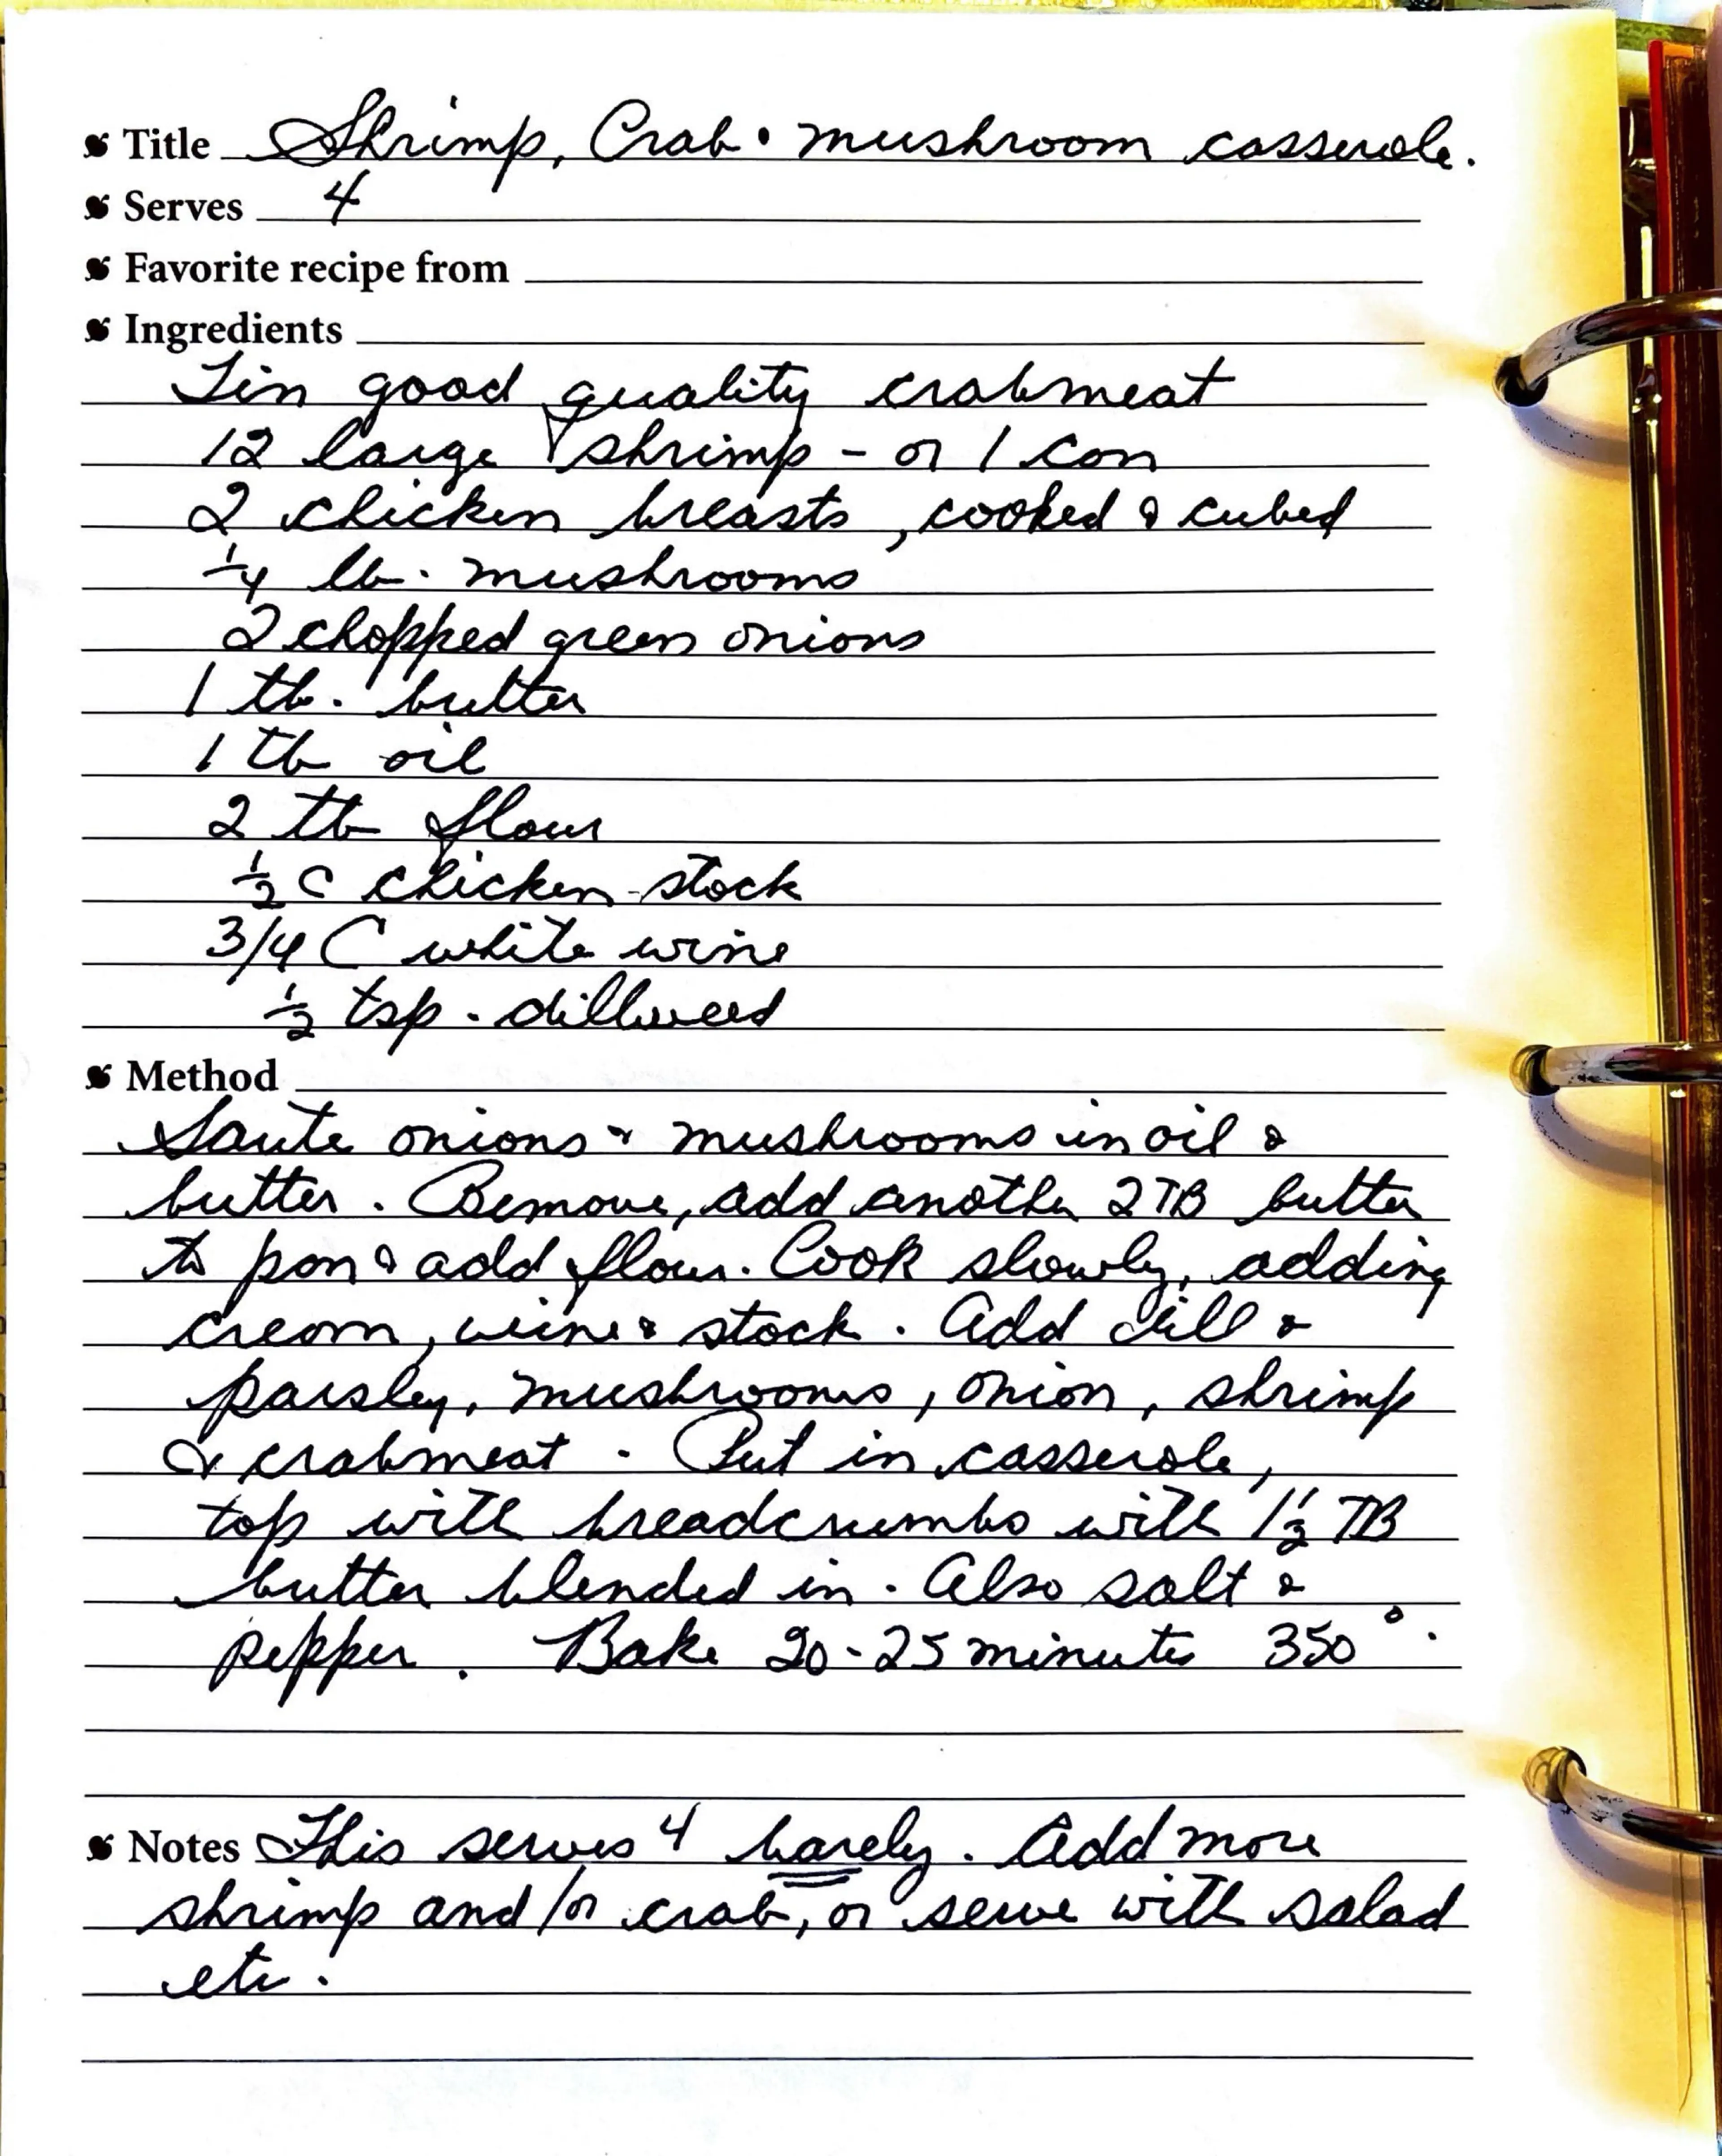 Title Shrimp, Crab & mushroom casserole.
Serves 4
Favorite recipe from
Ingredients
Tin good quality crabmeat
12 large shrimp - or 1 can
2 chicken breasts, cooked & cubed
1/4 lb. mushrooms
2 chopped green onions
1 tb. butter
1 tb oil
2 tb flour
1/2 c chicken stock
3/4 C white wine
1/2 tsp. dillweed
Method
Saute onions & mushrooms in oil &
butter. Remove, add another 2 TB butter
to pan & add flour. Cook slowly, adding
cream, wine & stock. Add dill &
parsley, mushrooms, onion, shrimp
& crabmeat. Put in casserole,
top with breadcrumbs with 1 1/2 TB
butter blended in. Also salt &
pepper. Bake 20-25 minutes 350°.
Notes This serves 4 barely. Add more
shrimp and/or crab, or serve with salad
etc.